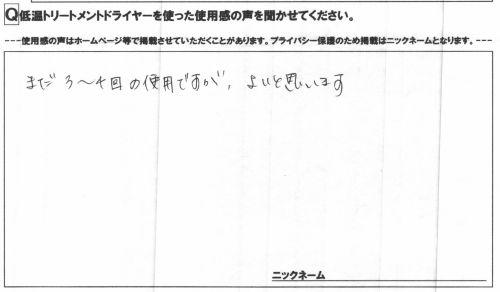 Q低温トリートメントドライヤーを使った使用感の声を聞かせてください。
---使用感の声はホームページ等で掲載させていただくことがあります。プライバシー保護のため掲載はニックネームとなります。---
まだ3〜4回の使用ですが、よいと思います
ニックネーム